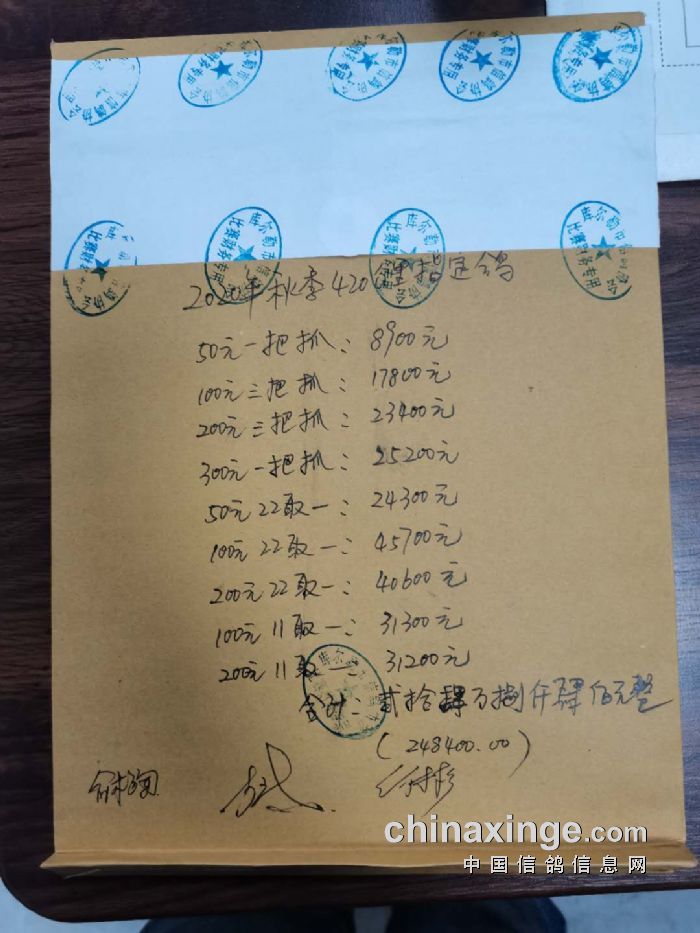 库尔勒市信鸽协会
比赛财务专用
2020年秋季420公里指定鸽
50元一把抓：8900元
100元三把抓：17800元
200元三把抓：23400元
300元一把抓：25200元
50元22取一：24300元
100元22取一：45700元
200元22取一：40600元
100元11取一：31300元
200元11取一 31200元
合计：贰拾肆万捌仟肆佰元整
(248400.00)
chinaxinge.com
中国信鸽信息网